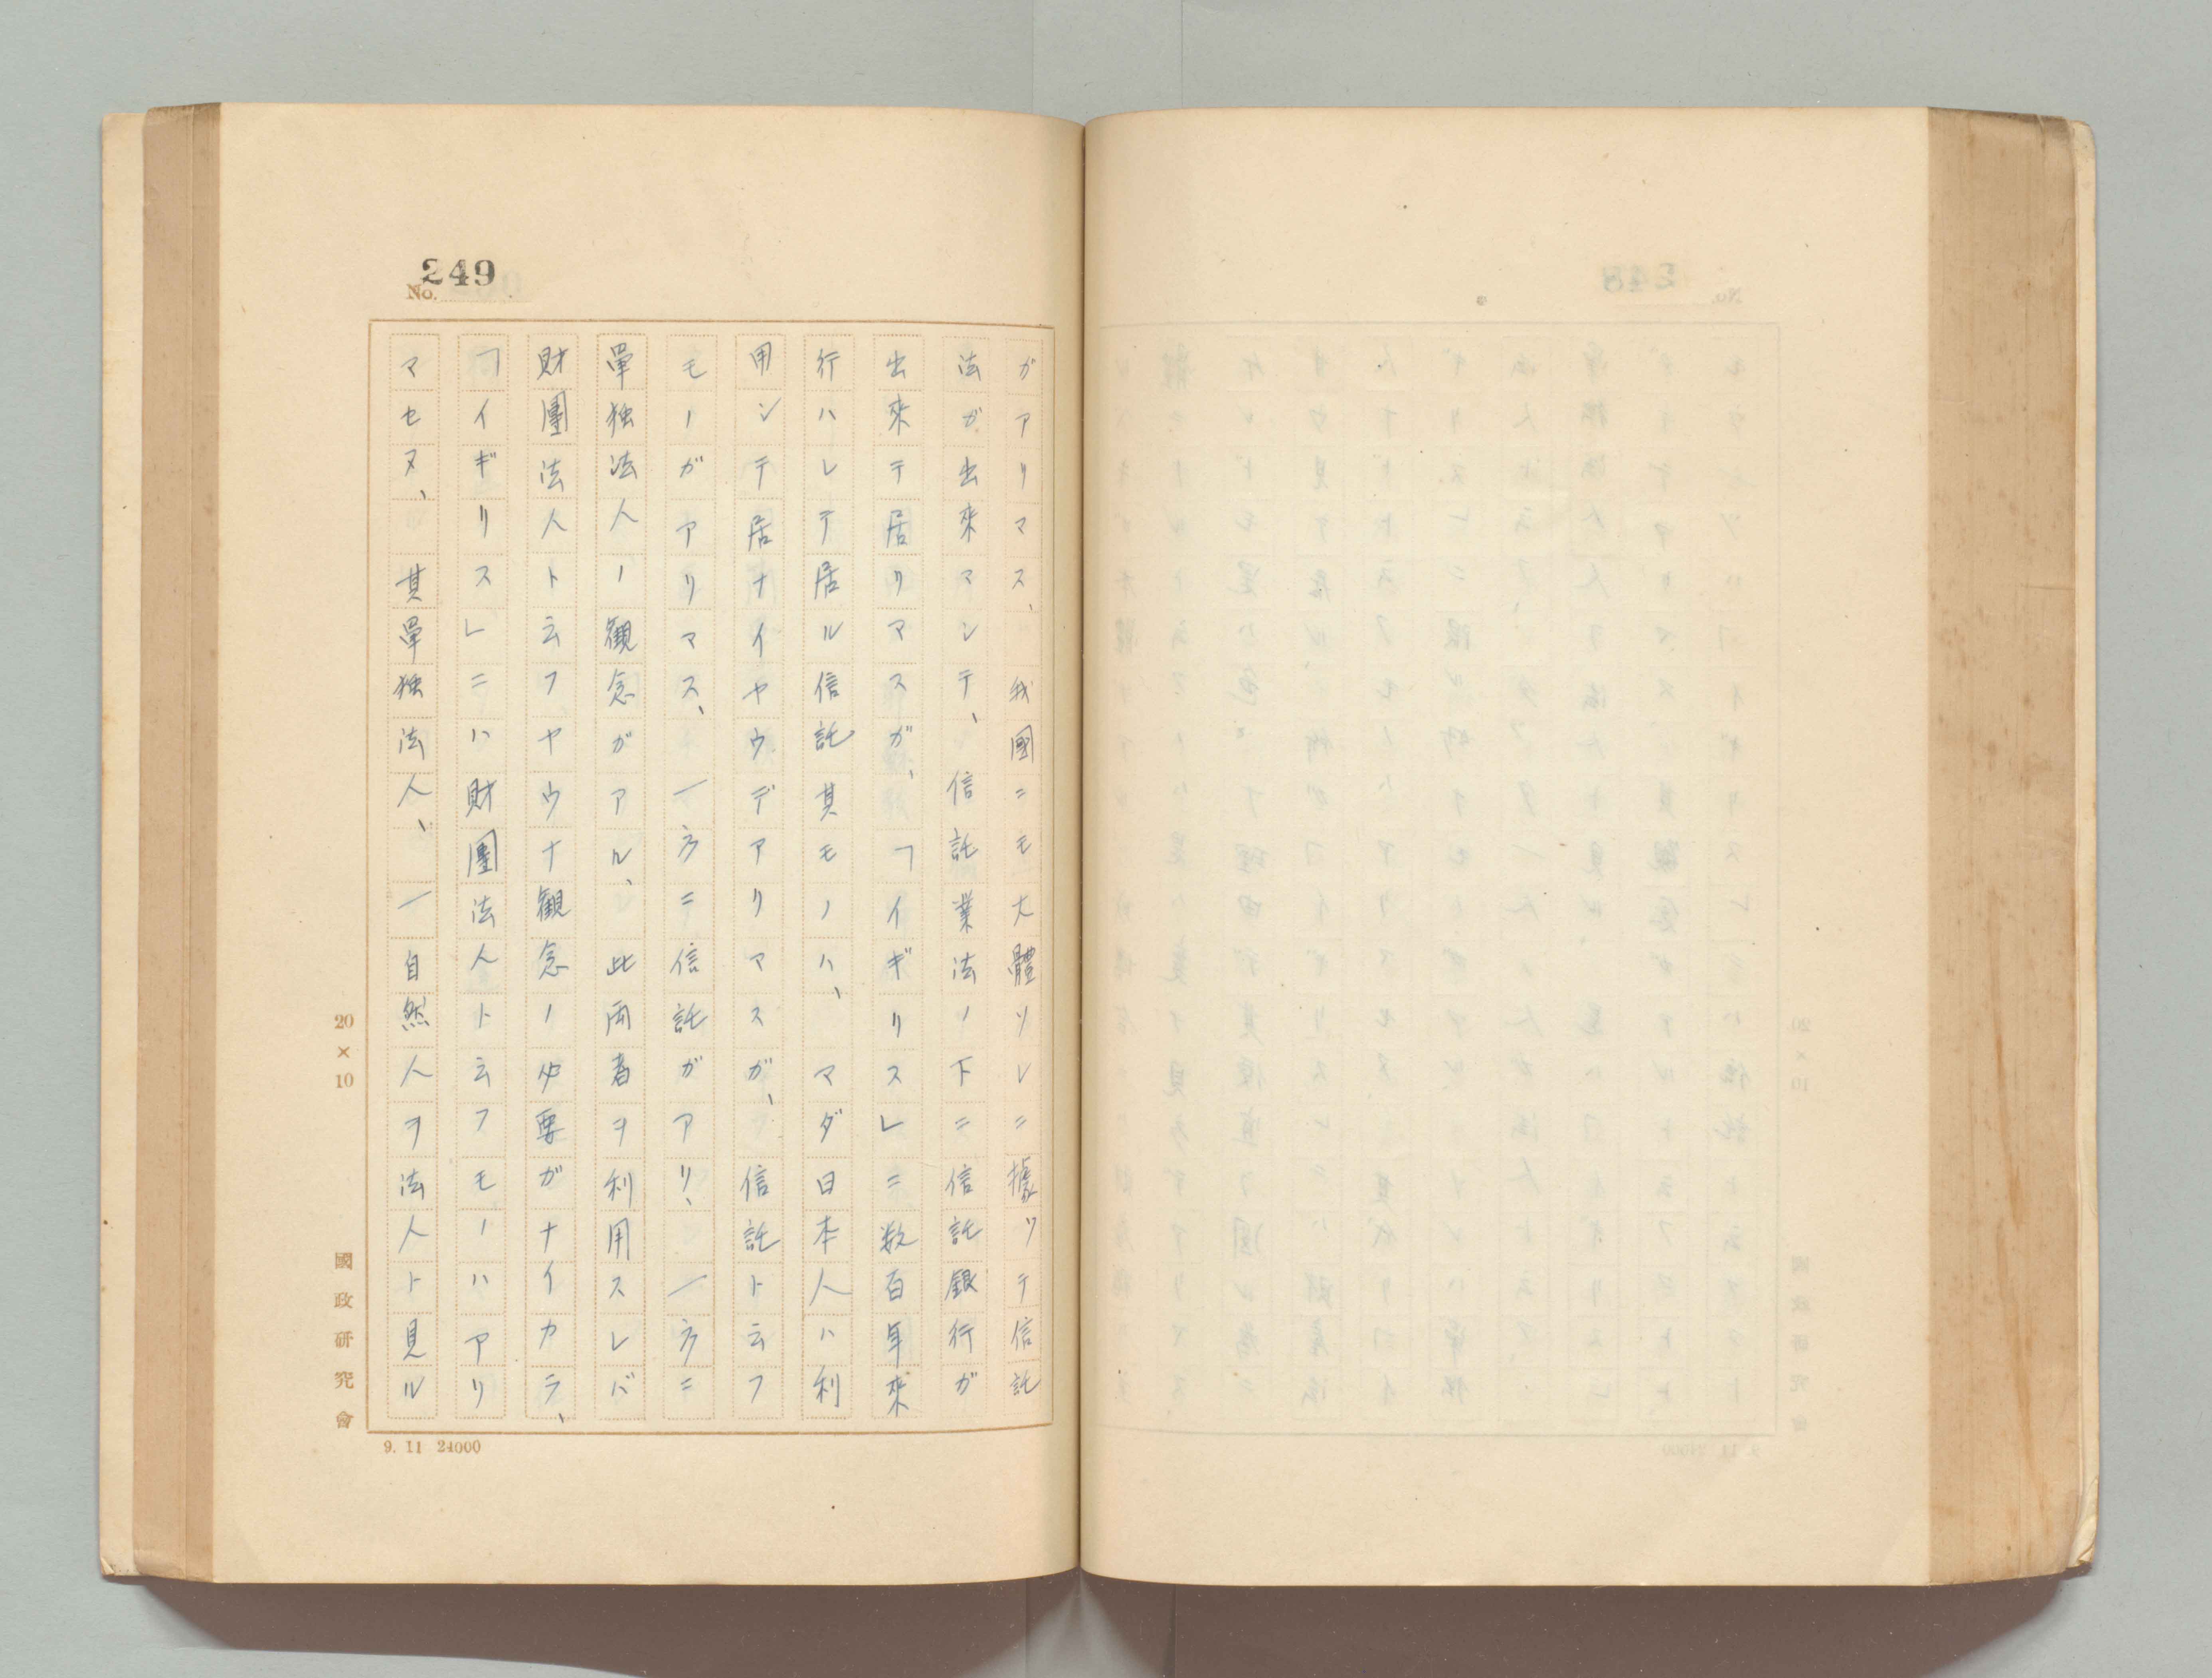 249
No.
ガアリマス、我國ニモ大體ソレニ據ツテ信託
法ガ出來マシテ、信託業法ノ下ニ信託銀行ガ
出來テ居リマスガ、「イギリスレニ数百年來
行ハレテ居ル信託其モノハ、マダ日本人ハ利
用シテ居ナイヤウデアリマスガ、信託ト云フ
モノガアリマス、一方ニ信託ガアリ、一方ニ
單独法人ノ観念ガアル、此両者ヲ利用スレバ
財團法人ト云フヤウナ観念ノ必要ガナイカラ、
「イギリスレニハ財團法人ト云フモノハアリ
マセヌ、其單独法人、一自然人ヲ法人ト見ル
20×10
國政研究會
9. 11 24000